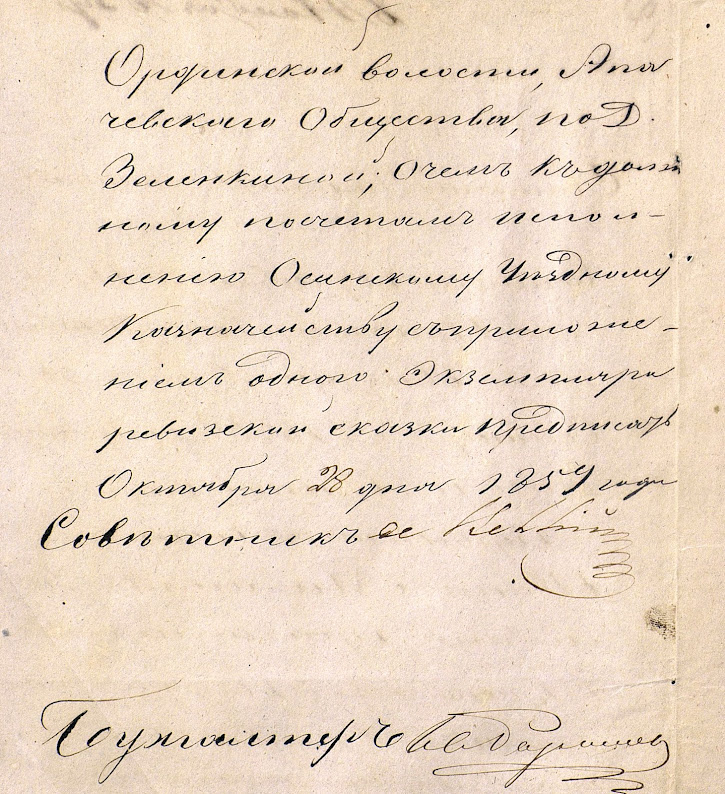 Ординской волости, Апа
чевскаго Общества, по Д.
Зеленкиной; очемъ къ долж
ному посчетамъ испол-
нению Осинскому Уѣздному
Казначейству съ приложе-
ніемъ одного Экземпляра
ревизской сказки предписать
Октября 28 дня 1859 года
Совѣтникъ
Бухгалтеръ